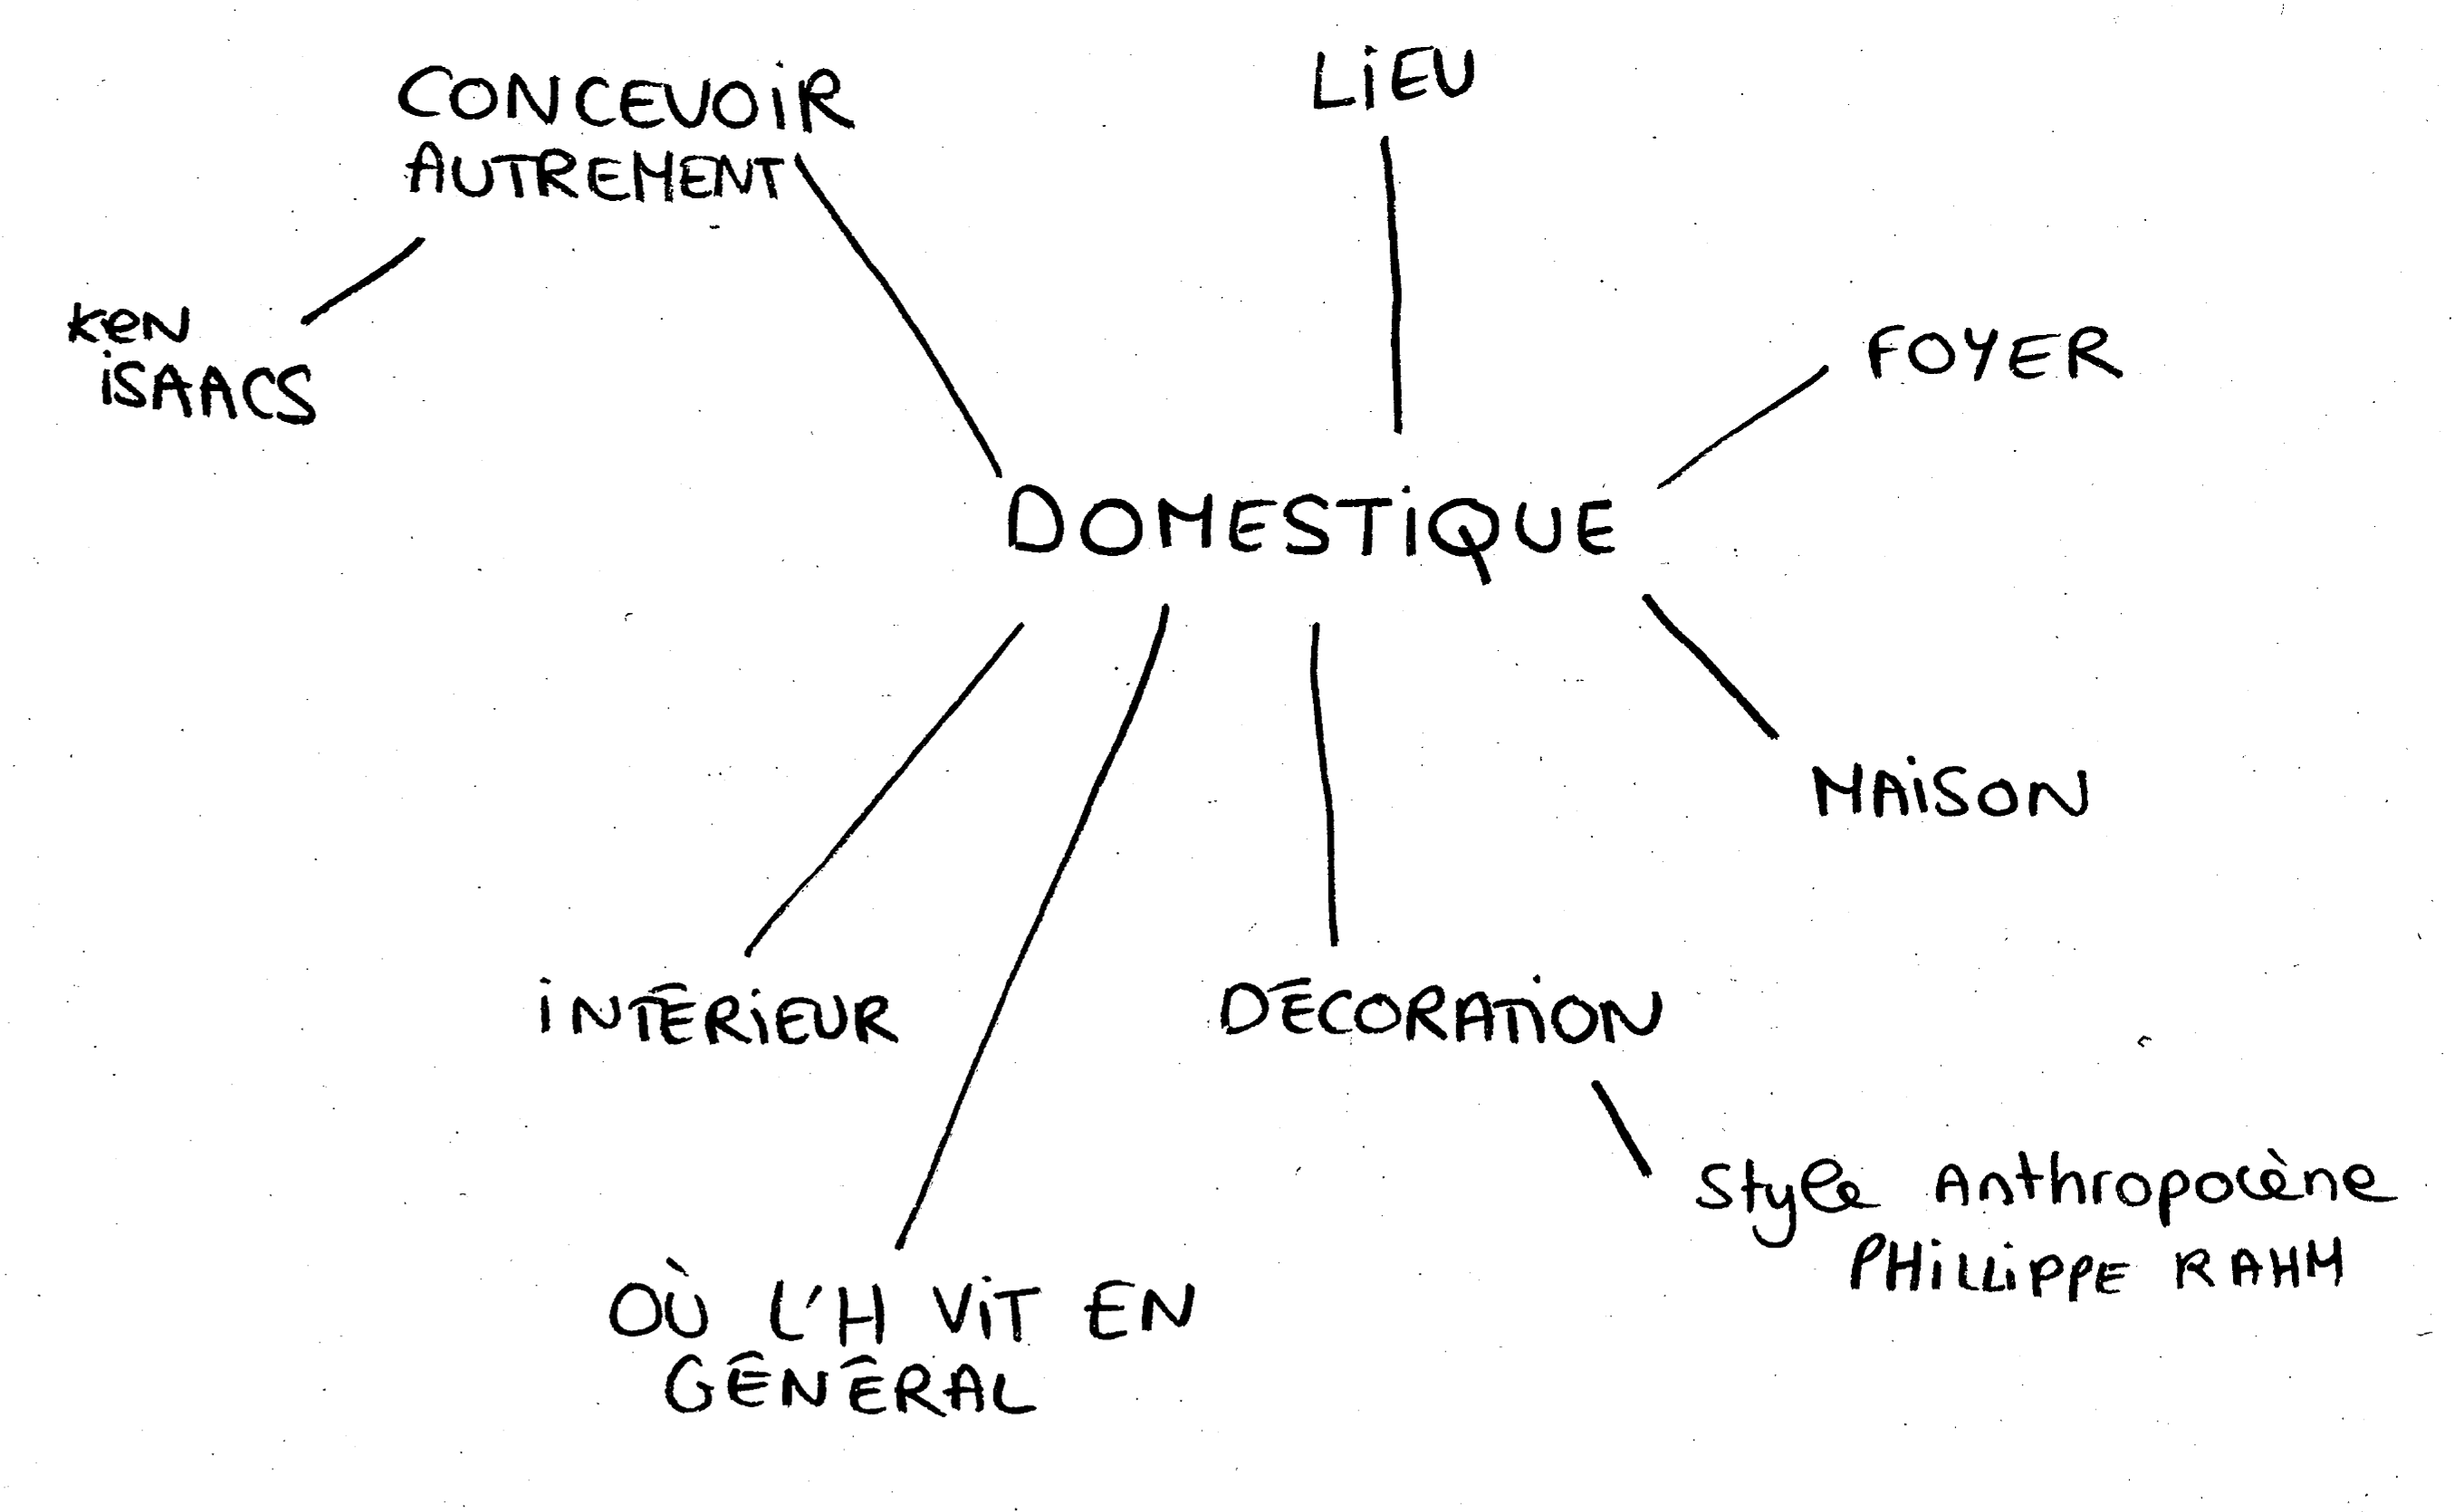 LIEU
CONCEVOIR
AUTREMENT
KEN
ISAACS
FOYER
DOMESTIQUE
MAISON
INTÉRIEUR
DÉCORATION
Style Anthropocène
PHILLIPPE RAHM
OÙ L'H VIT EN
GÉNÉRAL